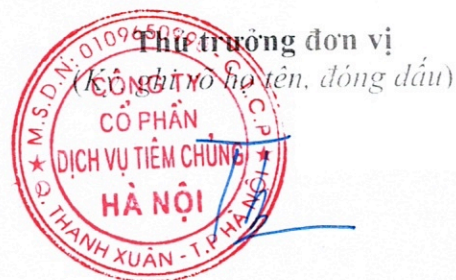 Thủ trưởng đơn vị
(Ký, ghi rõ họ tên, đóng dấu)
M.S.D.N: 0109650 - C.T.C.P
CÔNG TY
CỔ PHẦN
DỊCH VỤ TIÊM CHỦNG
HÀ NỘI
Q. THANH XUÂN - T.P HÀ NỘI